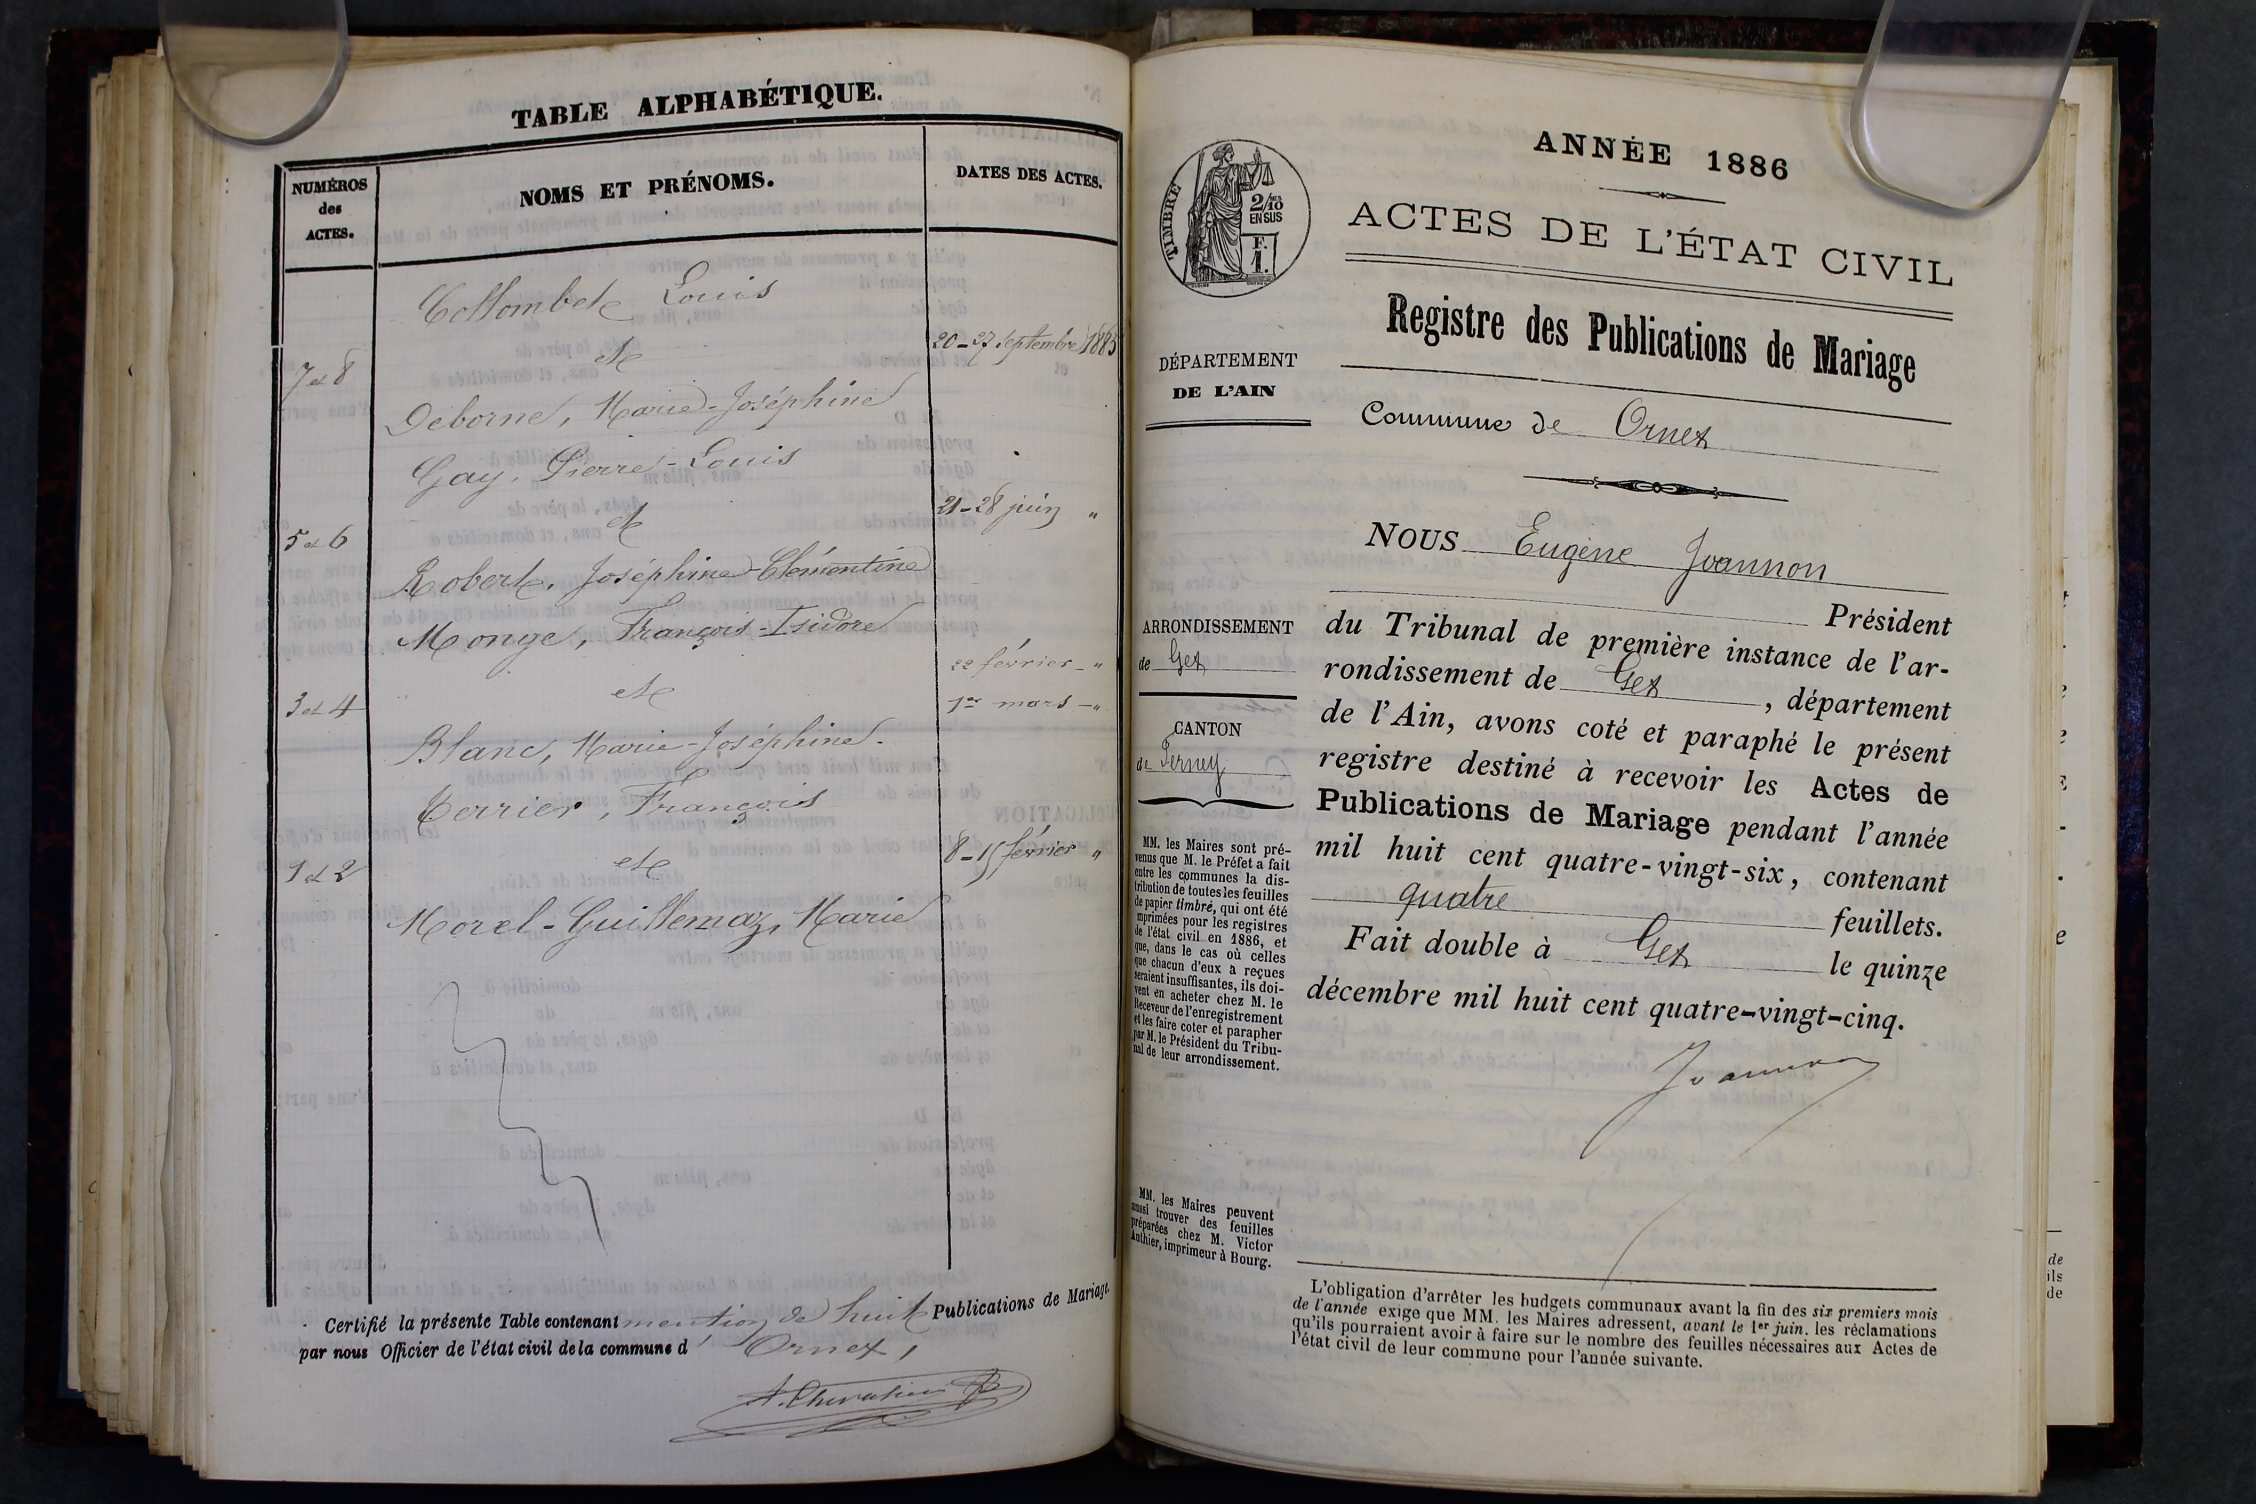 TABLE ALPHABÉTIQUE.
NUMÉROS
des
ACTES.
NOMS ET PRÉNOMS.
DATES DES ACTES.
Collombet Louis
7 et 8
et
20-27 septembre 1885
Deborne, Marie-Joséphine
Gay, Pierre-Louis
5 et 6
et
21-28 juin "
Robert, Joséphine-Clémentine
Monge, François-Isidore
22 février - "
3 et 4
et
1er mars - "
Blanc, Marie-Joséphine.
Perrier, François
1 et 2
et
8-15 février "
Morel-Guillemaz, Marie
Certifié la présente Table contenant mention de huit Publications de Mariage.
par nous Officier de l'état civil de la commune d' Ornex,
A. Chevalier
ANNÉE 1886
TIMBRE
2/10
EN SUS
F.
1.
ACTES DE L'ÉTAT CIVIL
Registre des Publications de Mariage
DÉPARTEMENT
DE L'AIN
Commune de Ornex
NOUS Eugène Jvannon
Président
ARRONDISSEMENT
de Gex
CANTON
de Ferney
du Tribunal de première instance de l'ar-
rondissement de Gex, département
de l'Ain, avons coté et paraphé le présent
registre destiné à recevoir les Actes de
Publications de Mariage pendant l'année
mil huit cent quatre-vingt-six, contenant
quatre feuillets.
Fait double à Gex le quinze
décembre mil huit cent quatre-vingt-cinq.
Jvannon
MM. les Maires sont pré-
venus que M. le Préfet a fait
entre les communes la dis-
tribution de toutes les feuilles
de papier timbré, qui ont été
imprimées pour les registres
de l'état civil en 1886, et
que, dans le cas où celles
que chacun d'eux a reçues
seraient insuffisantes, ils doi-
vent en acheter chez M. le
Receveur de l'enregistrement
et les faire coter et parapher
par M. le Président du Tribu-
nal de leur arrondissement.
MM. les Maires peuvent
aussi trouver des feuilles
préparées chez M. Victor
Authier, imprimeur à Bourg.
L'obligation d'arrêter les budgets communaux avant la fin des six premiers mois
de l'année exige que MM. les Maires adressent, avant le 1er juin, les réclamations
qu'ils pourraient avoir à faire sur le nombre des feuilles nécessaires aux Actes de
l'état civil de leur commune pour l'année suivante.
de
ils
de